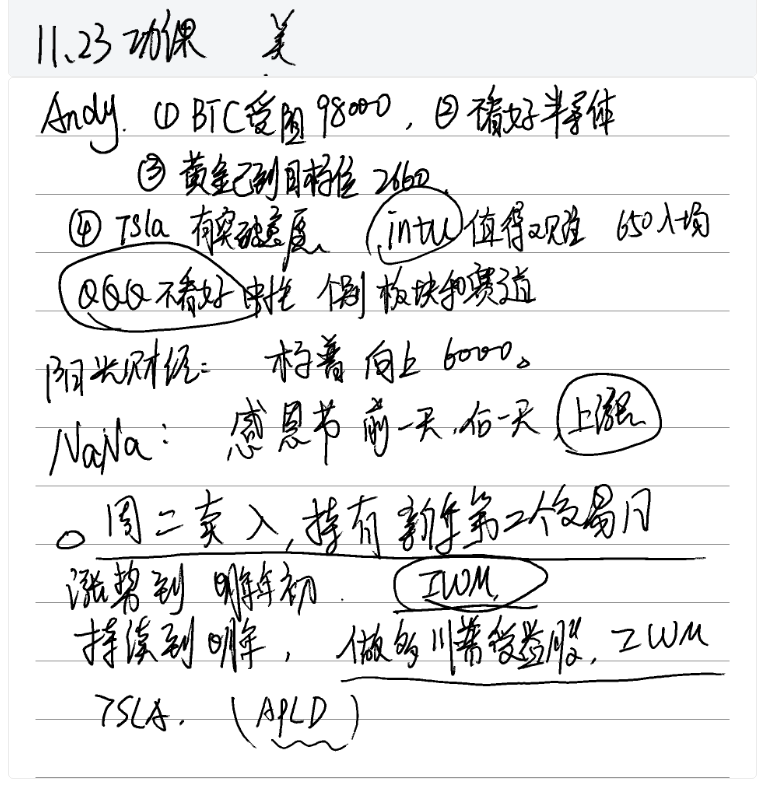 11.23 功课 美
Andy. ① BTC受阻 98000, ② 不看好半导体
③ 黄金已到目标位 2660
④ Tsla 有突破意愿、 intu 值得观注 650入场
QQQ 不看好 个别 板块和赛道
阳光财经: 标普 向上 6000。
NaNa: 感恩节 前一天, 后一天, 上涨
。周二卖入, 持有 新年第二个交易日
涨势到 明年年初. IWM,
持续到明年, 做多川普受益股, IWM
TSLA. (APLD)